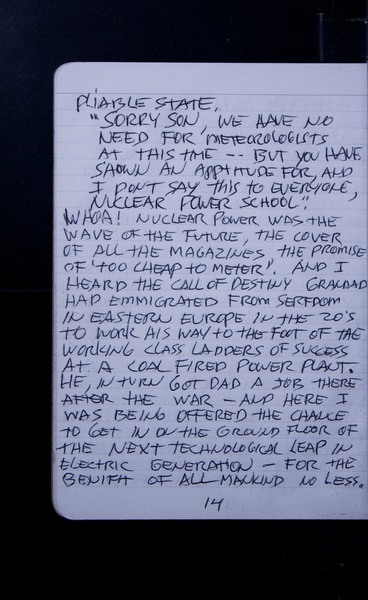 PLIABLE STATE.
"SORRY SON, WE HAVE NO
NEED FOR METEOROLOGISTS
AT THIS TIME -- BUT YOU HAVE
SHOWN AN APPTITUDE FOR, AND
I DON'T SAY THIS TO EVERYONE,
NUCLEAR POWER SCHOOL".
WHOA! NUCLEAR POWER WAS THE
WAVE OF THE FUTURE, THE COVER
OF ALL THE MAGAZINES THE PROMISE
OF "TOO CHEAP TO METER". AND I
HEARD THE CALL OF DESTINY GRANDAD
HAD EMMIGRATED FROM SERFDOM
IN EASTERN EUROPE IN THE 20'S
TO WORK HIS WAY TO THE FOOT OF THE
WORKING CLASS LADDERS OF SUCCESS
AT A COAL FIRED POWER PLANT.
HE, IN TURN GOT DAD A JOB THERE
AFTER THE WAR - AND HERE I
WAS BEING OFFERED THE CHANCE
TO GET IN ON THE GROUND FLOOR OF
THE NEXT TECHNOLOGICAL LEAP IN
ELECTRIC GENERATION - FOR THE
BENIFIT OF ALL MANKIND NO LESS..
14